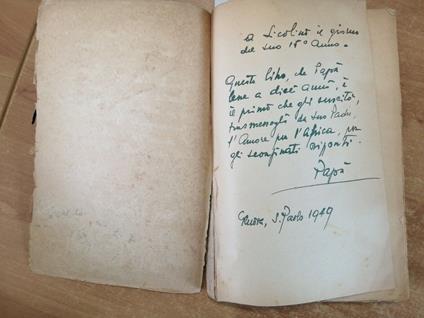 a Nicolino il giorno
del suo 18° Anno.
Questo libro, che Papà
lesse a dieci anni, è
il primo che gli suscitò,
trasmessogli da suo Padre,
l'Amore per l'Africa, per
gli sconfinati orizzonti.
Papà
S. Paolo 1949